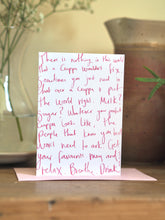 There is nothing in this world
that a Cuppa Wouldn't fix
Sometimes you just need to
that over a Cuppa & put
the world right. Milk?
Sugar? Whatever your perfect
Cuppa Looks like, its the
people that know you best
don't need to ask. Get
your favourite mug and
relax. Breath. Drink